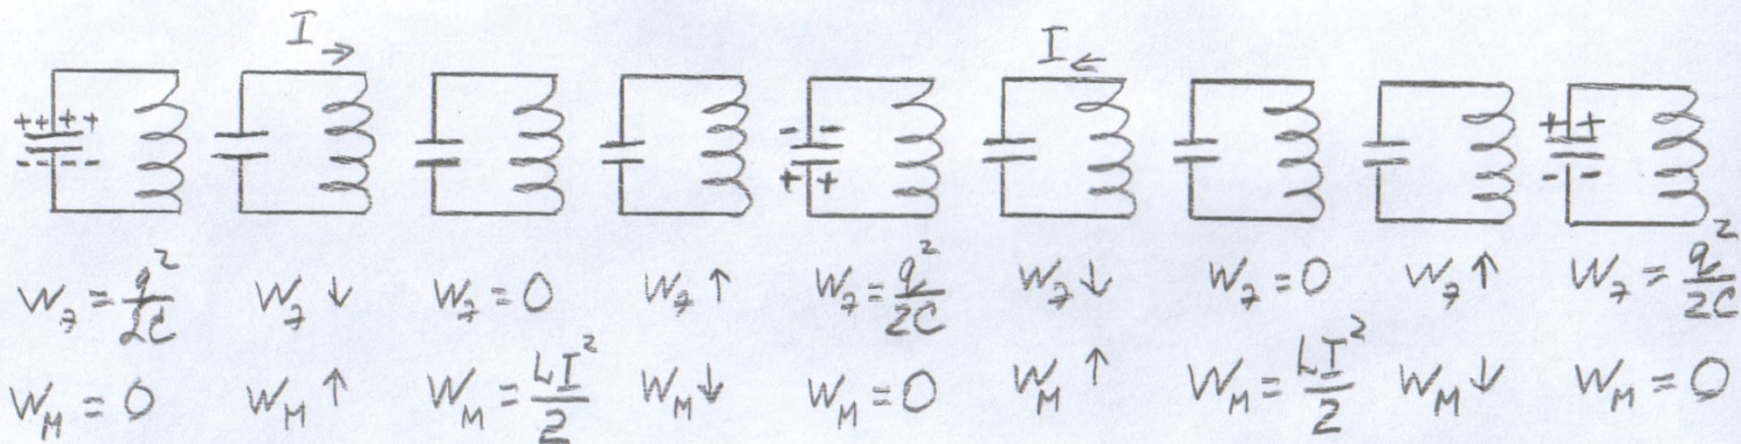 I → I ←
++++ -- ++
---- ++ --
Wэ = q²/2C Wэ ↓ Wэ = 0 Wэ ↑ Wэ = q²/2C Wэ ↓ Wэ = 0 Wэ ↑ Wэ = q²/2C
Wм = 0 Wм ↑ Wм = LI²/2 Wм ↓ Wм = 0 Wм ↑ Wм = LI²/2 Wм ↓ Wм = 0